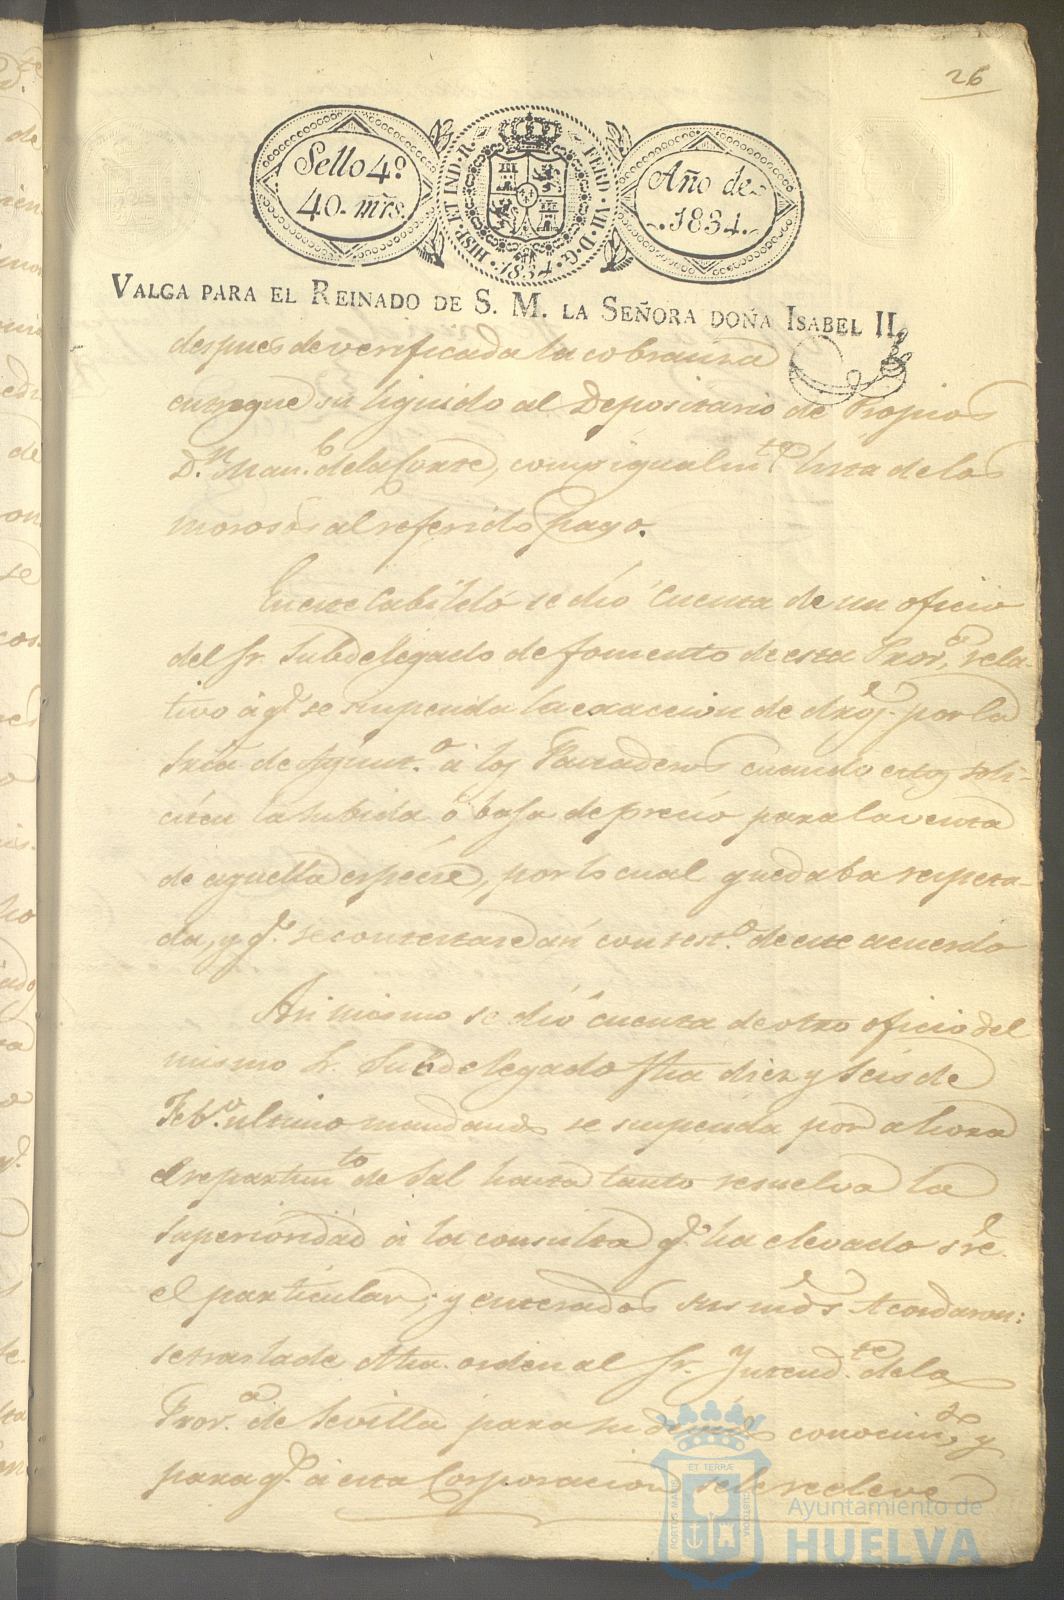 26
Sello 4.º
40. mrs.
HISP. ET IND. R. FERD. VII. D. G. 1834.
Año de
1834.
VALGA PARA EL REINADO DE S. M. LA SEÑORA DOÑA ISABEL II.
despues de verificada la cobranza
entregue su liquido al Depositario de Propios
D.n Man.l de la Corte, como igualm.te lista de los
morosos al referido pago.
En este Cabildo se dió cuenta de un oficio
del Sr. Subdelegado de fomento de esta Prov.a rela-
tivo á q.e se suspenda la exaccion de dros. por la
Sria. de Ayunt.o á los Panaderos cuando estos soli-
citen la subida ó baja de precio para la venta
de aquella especie, por lo cual quedaba
da, y q.e se contextase así con test.o de este acuerdo
Asi mismo se dió cuenta de otro oficio del
mismo Sr. Subdelegado fha diez y seis de
Feb.o ultimo mandando se suspenda por ahora
el repartim.to de Sal hasta tanto resuelva la
Superioridad á la consulta q.e ha elevado sre.
el particular; y enterados sus mds. Acordaron:
se traslade dha. orden al Sr. Yntend.te de la
Prov.a de Sevilla para su conocim.to y
para q.e á esta Corporacion se le releve
PORTUS MARIS ET TERRAE CUSTODIA
Ayuntamiento de
HUELVA